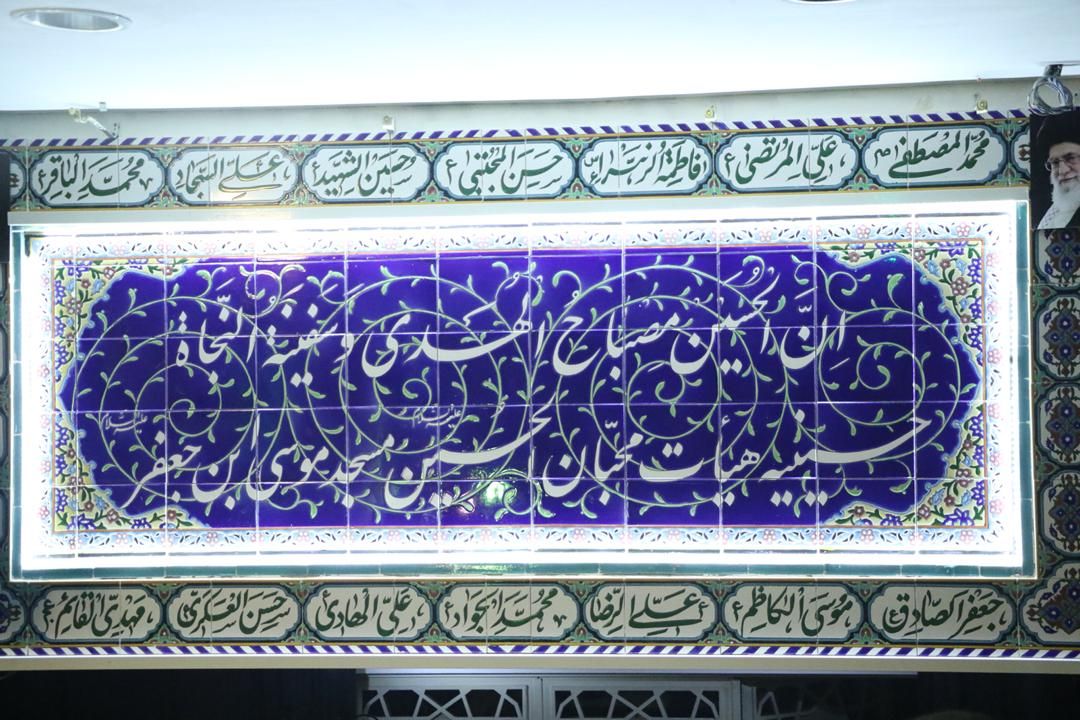 محمد المصطفی ص علی المرتضی ع فاطمة الزهراء حسن المجتبی ع حسین الشهید ع علی السجاد محمد الباقر ع
ان الحسین مصباح الهدی و سفینة النجاة
حسینیه هیئات محبان الحسین علیه السلام مسجد موسی ابن جعفر علیه السلام
جعفر الصادق ع موسی الکاظم ع علی الرضا ع محمد الجواد ع علی الهادی ع حسن العسکری ع مهدی القائم ع